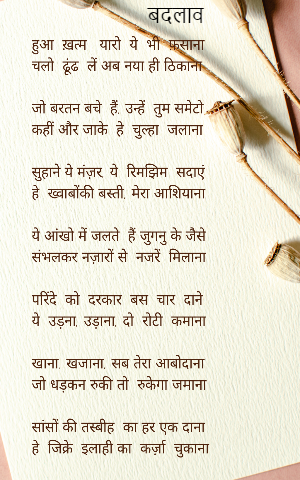 बदलाव
हुआ ख़त्म यारो ये भी फ़साना
चलो ढूंढ लें अब नया ही ठिकाना
जो बरतन बचे हैं, उन्हें तुम समेटो
कहीं और जाके हे चुल्हा जलाना
सुहाने ये मंज़र, ये रिमझिम सदाएं
हे ख्वाबोंकी बस्ती, मेरा आशियाना
ये आंखो में जलते हैं जुगनु के जैसे
संभलकर नज़ारों से नजरें मिलाना
परिंदे को दरकार बस चार दाने
ये उड़ना, उड़ाना, दो रोटी कमाना
खाना, खजाना, सब तेरा आबोदाना
जो धड़कन रुकी तो रुकेगा जमाना
सांसों की तस्बीह का हर एक दाना
हे जिक्रे इलाही का कर्ज़ा चुकाना